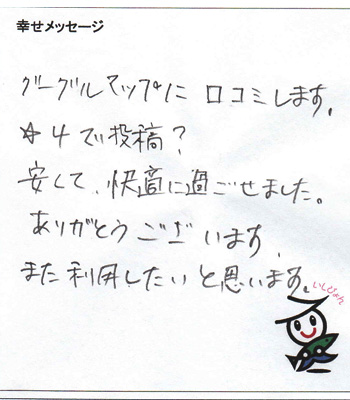 幸せメッセージ
グーグルマップに口コミします。
☆4で投稿?
安くて、快適に過ごせました。
ありがとうございます。
また利用したいと思います。